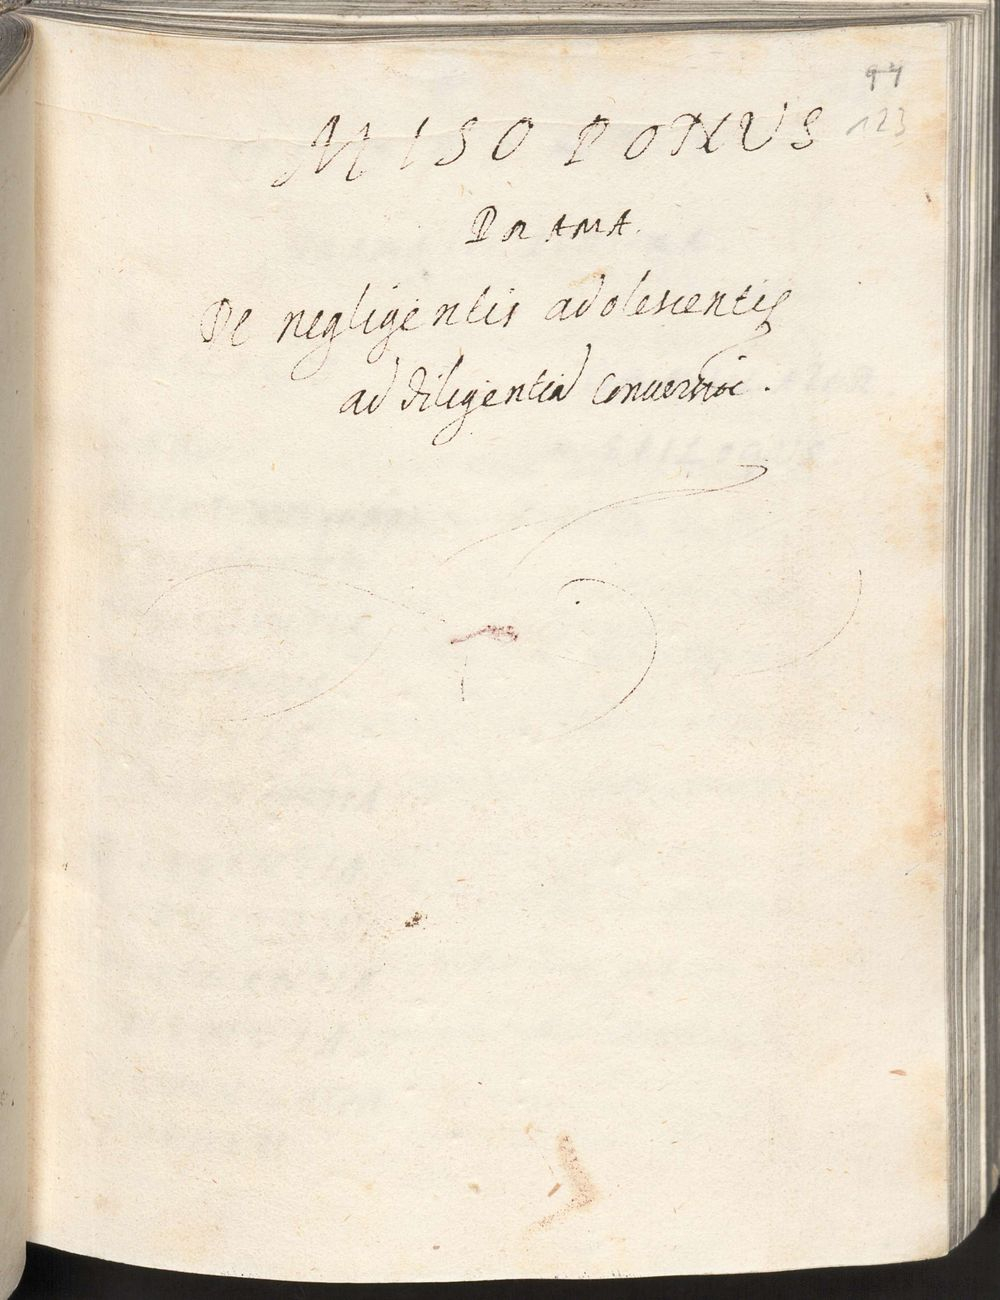 97
123
MISOPONUS
DRAMA.
De negligentis adolescentis
ad diligentiã conuersiõe.